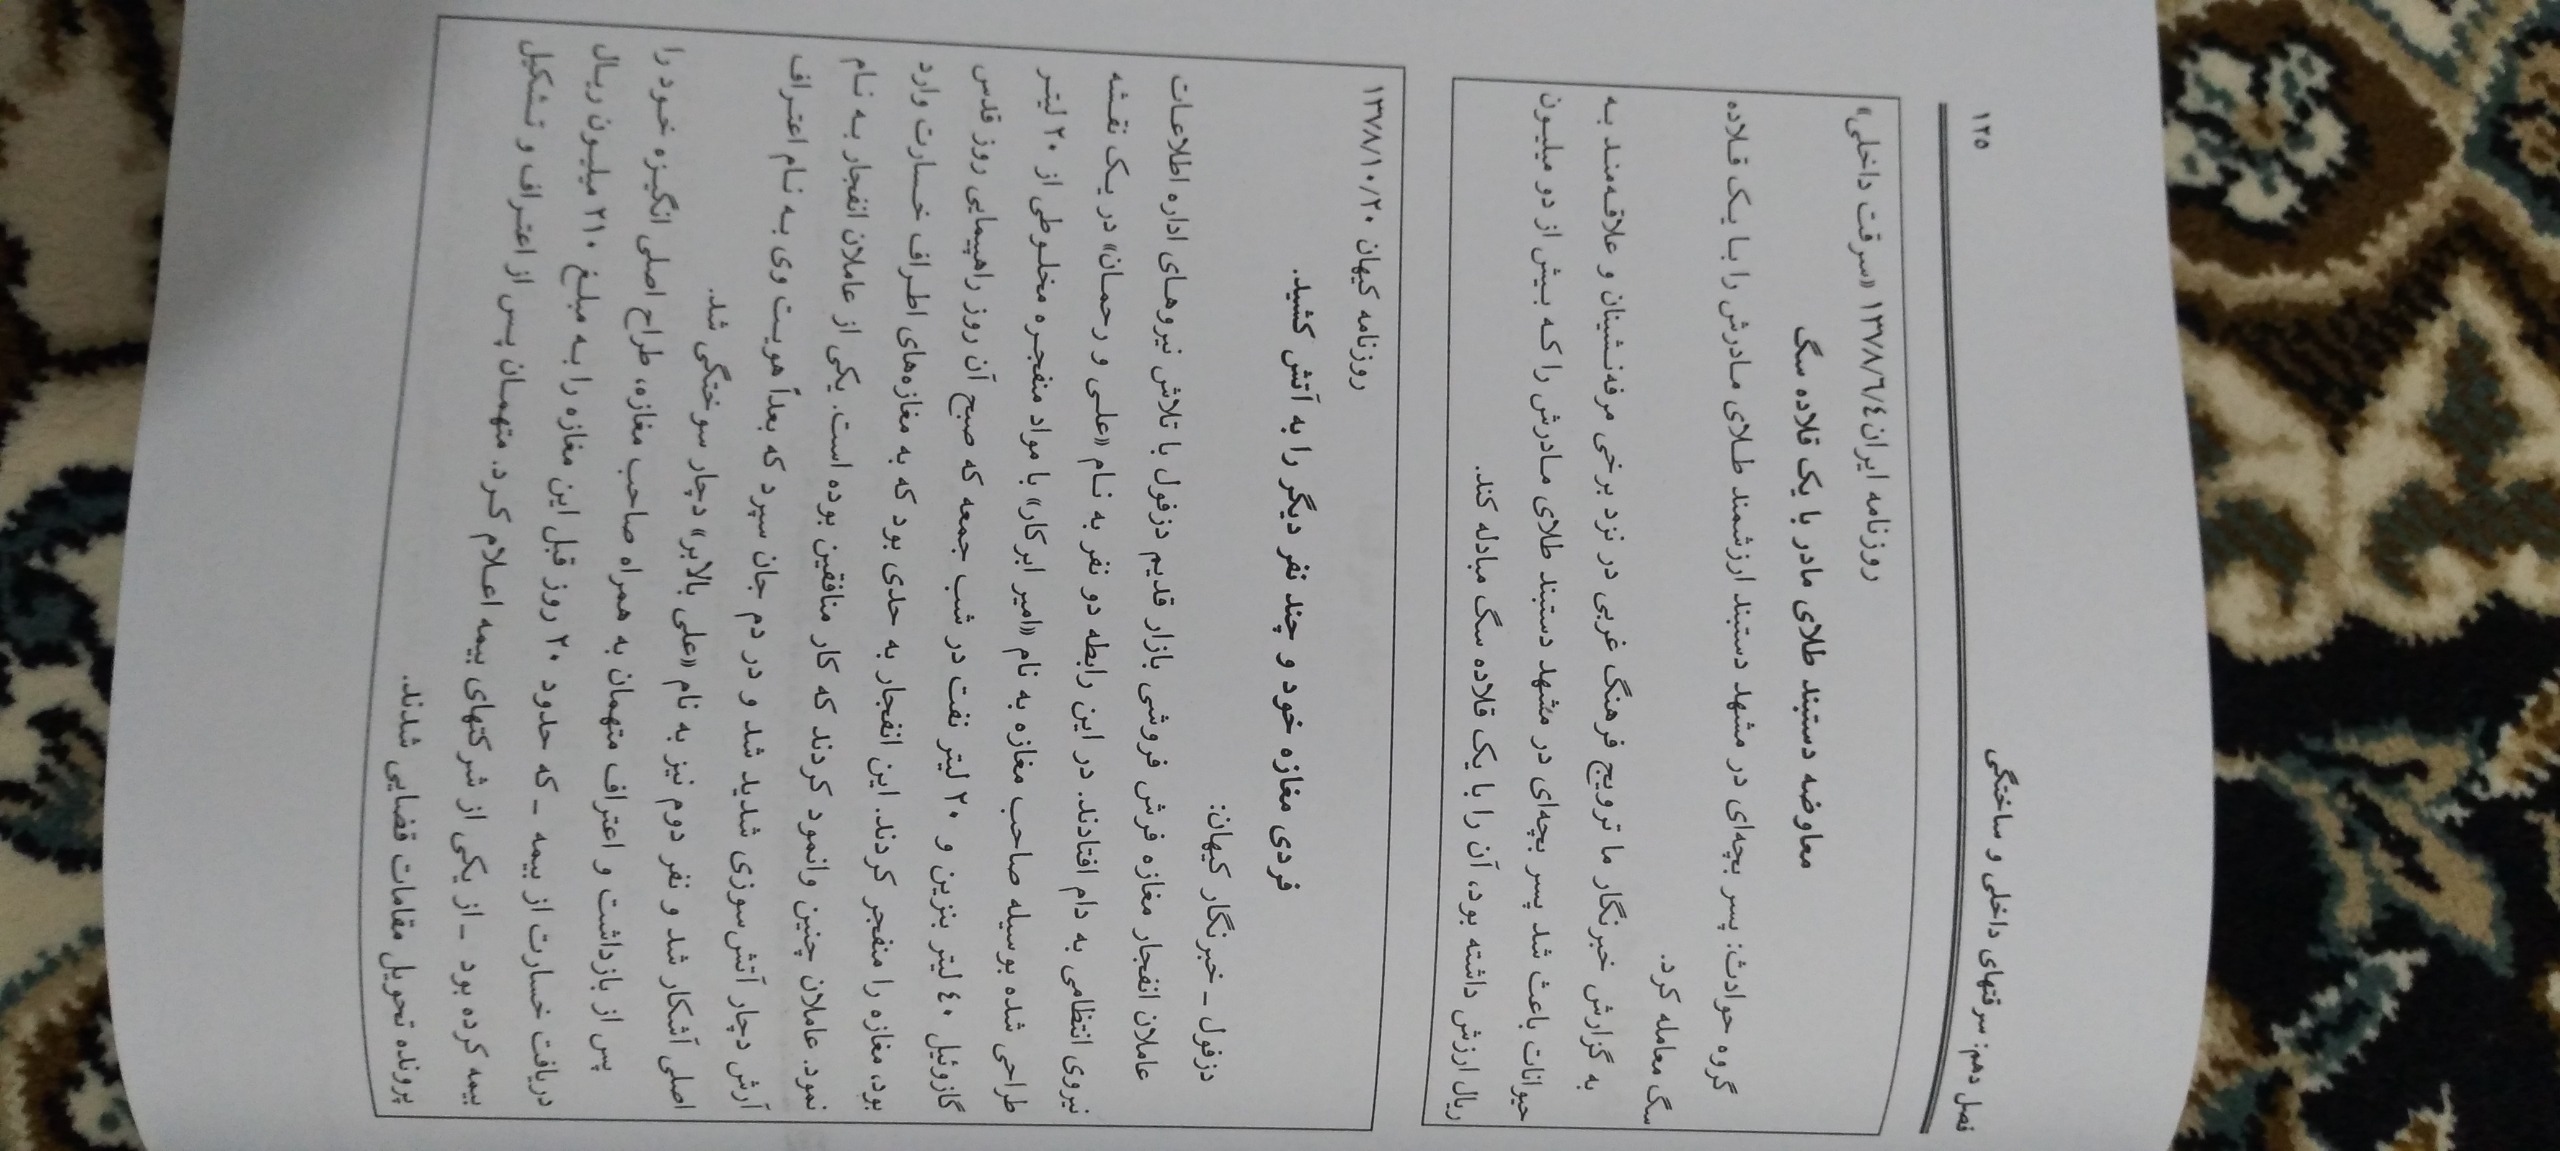 فصل دهم: سرقتهای داخلی و ساختگی ۱۲۵
روزنامه ایران ۱۳۷۸/۶/۴ «سرقت داخلی»
معاوضه دستبند طلای مادر با یک قلاده سگ
گروه حوادث: پسر بچه‌ای در مشهد دستبند ارزشمند طلای مادرش را با یک قلاده
سگ معامله کرد.
به گزارش خبرنگار ما ترویج فرهنگ غربی در نزد برخی مرفه‌نشینان و علاقه‌مند به
حیوانات باعث شد پسر بچه‌ای در مشهد دستبند طلای مادرش را که بیش از دو میلیون
ریال ارزش داشته بود، آن را با یک قلاده سگ مبادله کند.
روزنامه کیهان ۱۳۷۸/۱۰/۲۰
فردی مغازه خود و چند نفر دیگر را به آتش کشید.
دزفول ـ خبرنگار کیهان:
عاملان انفجار مغازه فرش فروشی بازار قدیم دزفول با تلاش نیروهای اداره اطلاعات
نیروی انتظامی به دام افتادند. در این رابطه دو نفر به نام «علی و رحمان» در یک نقشه
طراحی شده بوسیله صاحب مغازه به نام «امیر ابرکار» با مواد منفجره مخلوطی از ۲۰ لیتر
گازوئیل ۴۰ لیتر بنزین و ۲۰ لیتر نفت در شب جمعه که صبح آن روز راهپیمایی روز قدس
بود، مغازه را منفجر کردند. این انفجار به حدی بود که به مغازه‌های اطراف خسارت وارد
نمود. عاملان چنین وانمود کردند که کار منافقین بوده است. یکی از عاملان انفجار به نام
آرش دچار آتش‌سوزی شدید شد و در دم جان سپرد که بعداً هویت وی به نام اعتراف
اصلی آشکار شد و نفر دوم نیز به نام «علی بالابر» دچار سوختگی شد.
پس از بازداشت و اعتراف متهمان به همراه صاحب مغازه، طراح اصلی انگیزه خود را
دریافت خسارت از بیمه ـ که حدود ۲۰ روز قبل این مغازه را به مبلغ ۲۱۰ میلیون ریال
بیمه کرده بود ـ از یکی از شرکتهای بیمه اعلام کرد. متهمان پس از اعتراف و تشکیل
پرونده تحویل مقامات قضایی شدند.